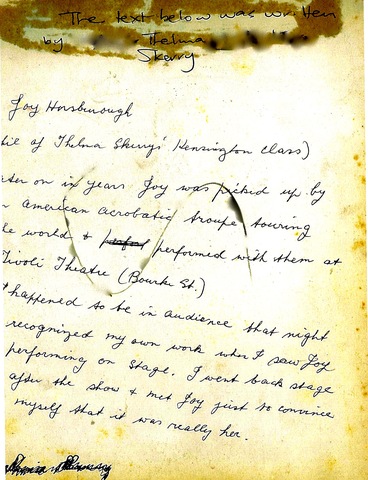 The text below was written
by Thelma
Skerry
Joy Horsburough
il of Thelma Skerry's Kensington Class)
ater on in years Joy was picked up by
American acrobatic troupe touring
he world & performed with them at
Tivoli Theatre (Bourke St.)
happened to be in audience that night
recognized my own work when I saw Joy
performing on stage. I went back stage
after the show & met Joy just to convince
myself that it was really her.